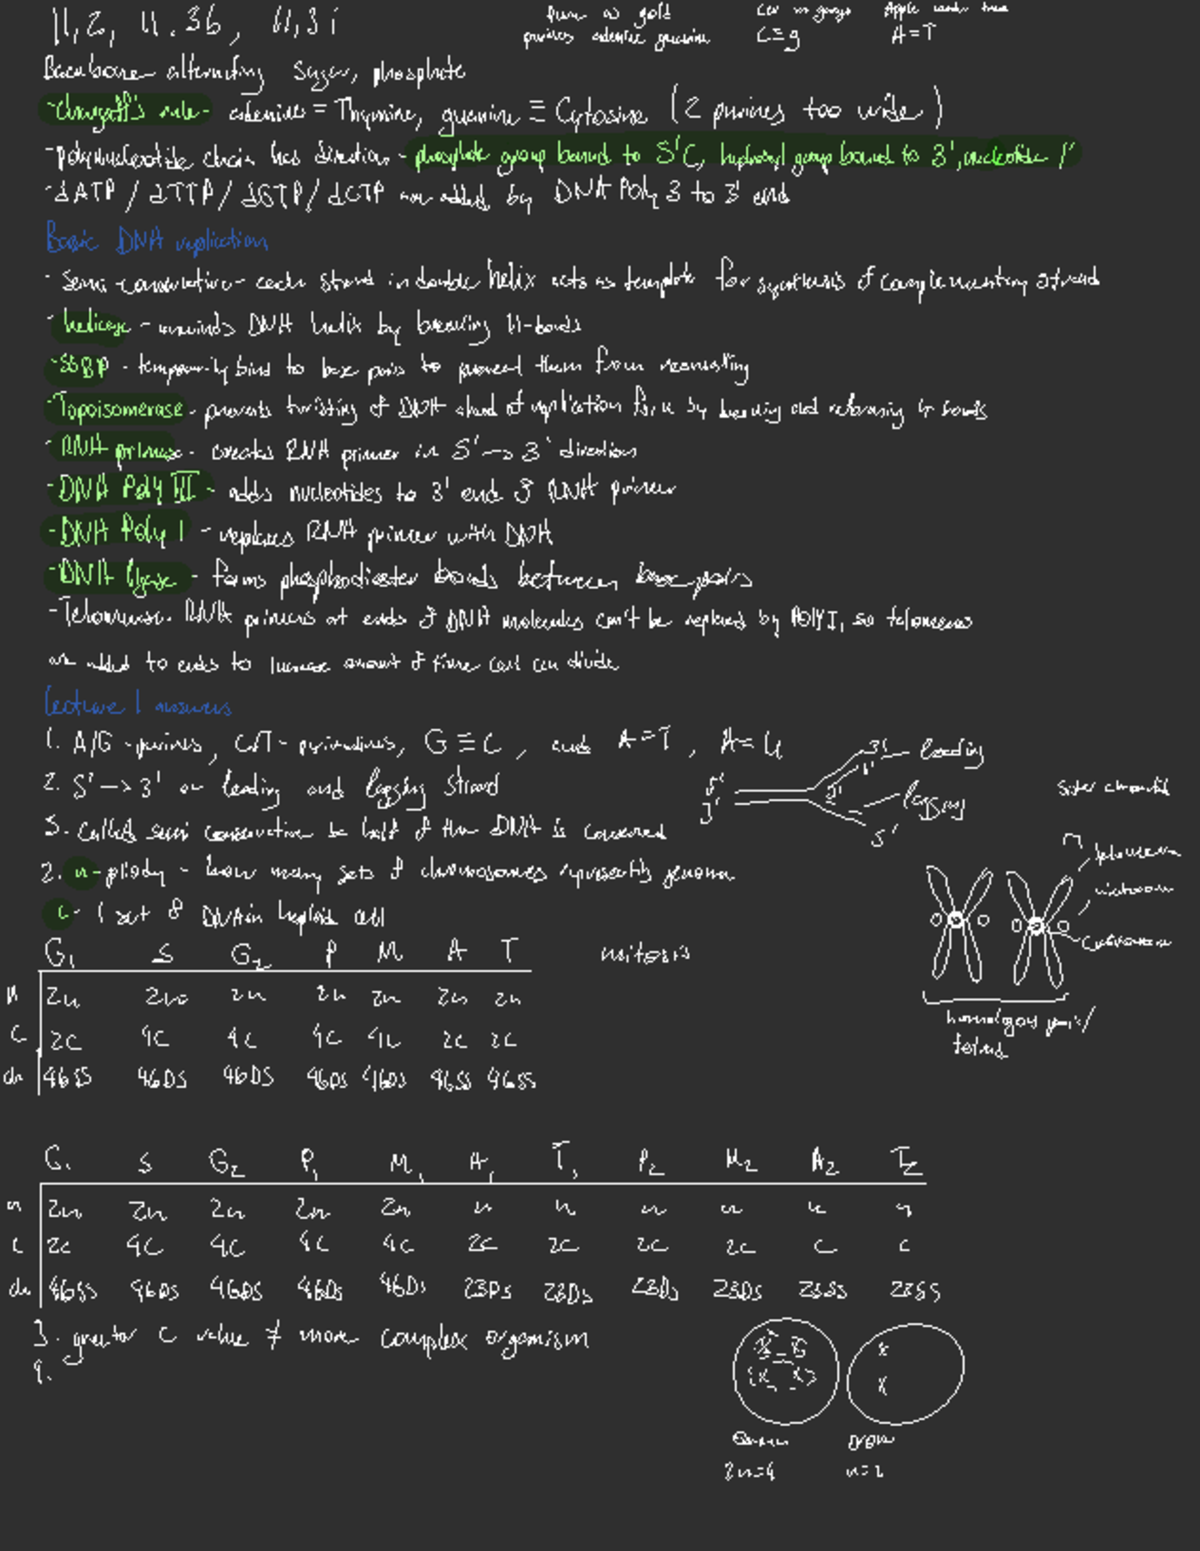 11,2, 11.3b, 11,3i
pure as gold
purines adenine guanine
Car in garage
C≡g
Apple under tree
A=T
Backbone alternating sugar, phosphate
-Chargaff's rule- adenine = Thymine, guanine ≡ Cytosine (2 purines too wide)
-polynucleotide chain has direction - phosphate group bound to 5'C, hydroxyl group bound to 3', nucleotide 1'
-dATP / dTTP / dGTP / dCTP are added by DNA Poly 3 to 3' end
Basic DNA replication
-Semi-conservative- each strand in double helix acts as template for synthesis of complementary strand
-helicase - unwinds DNA helix by breaking H-bonds
-SSBP - temporarily bind to base pairs to prevent them from reannealing
-Topoisomerase - prevents twisting of DNA ahead of replication fork by breaking and reforming bonds
-RNA primase - creates RNA primer in 5' -> 3' direction
-DNA Poly III - adds nucleotides to 3' end of RNA primer
-DNA Poly I - replaces RNA primer with DNA
-DNA ligase - forms phosphodiester bonds between base pairs
-Telomerase- RNA primers at ends of DNA molecules can't be replaced by POLY I, so telomeres
are added to ends to increase amount of time cell can divide
Lecture 1 answers
1. A/G - purines, C/T - pyrimidines, G≡C, and A=T, A=U
2. 5' -> 3' on leading and lagging strand
3. Called semi conservative bc half of the DNA is conserved
5'
3'
3'
5'
3'
5'
leading
lagging
Sister chromatid
telomere
centromere
homologous pair/
tetrad
2. n-ploidy - how many sets of chromosomes represents genome
c- 1 set of DNA in haploid cell
G1 S G2 P M A T mitosis
n 2n 2n 2n 2n 2n 2n 2n
C 2C 4C 4C 4C 4C 2C 2C
chr 46SS 46DS 46DS 46DS 46DS 46SS 46SS
G1 S G2 P1 M1 A1 T1 P2 M2 A2 T2
n 2n 2n 2n 2n 2n n n n n n n
c 2c 4C 4C 4C 4C 2C 2C 2C 2C C C
chr 46SS 46DS 46DS 46DS 46DS 23DS 23DS 23DS 23DS 23SS 23SS
3. greater C value ≠ more complex organism
4.
2n=4
n=2